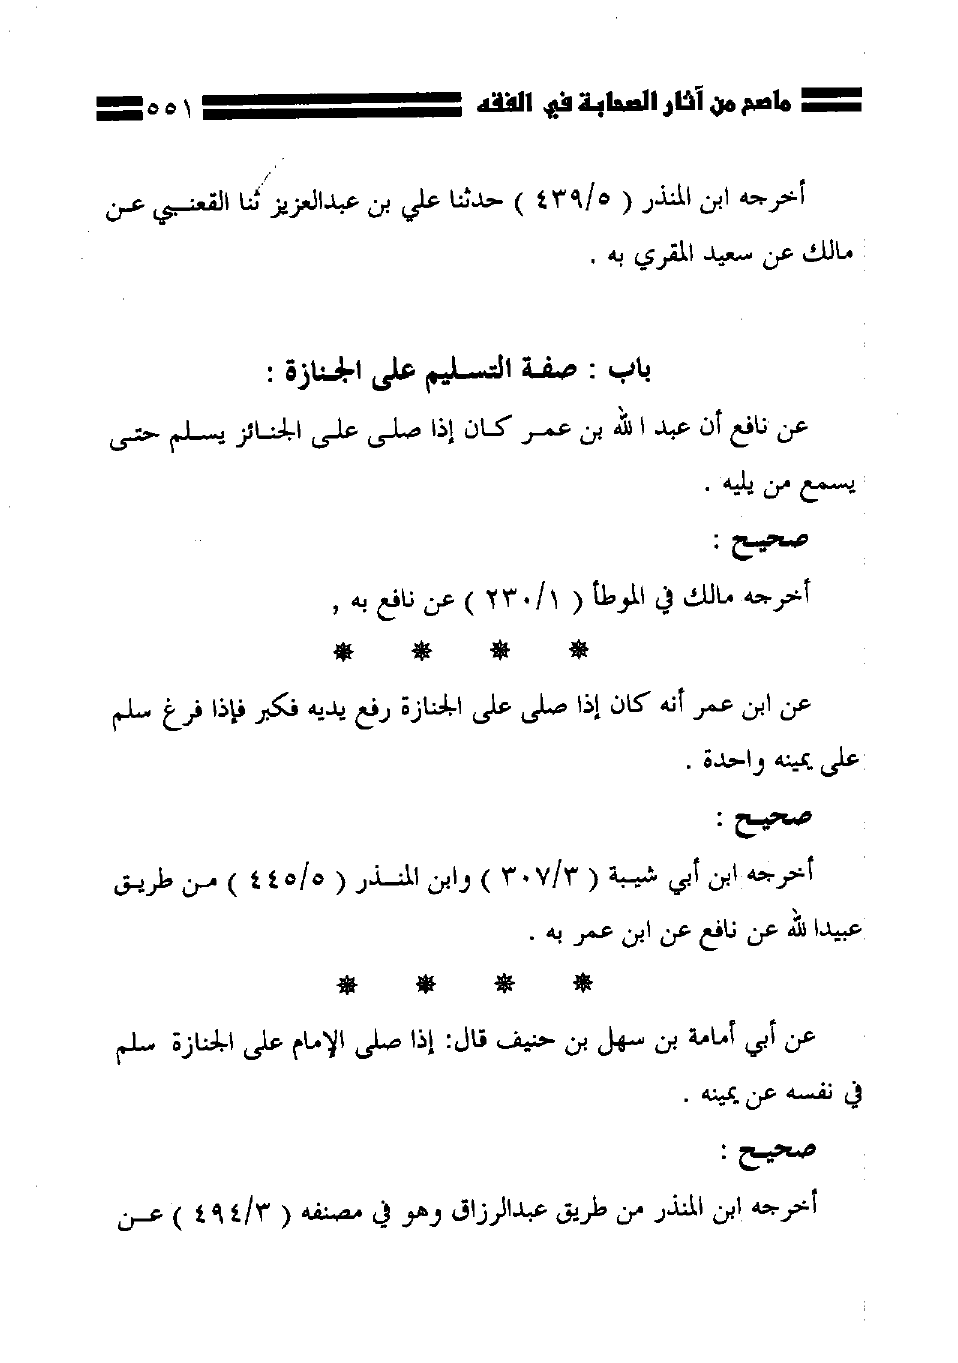 ماصح من آثار الصحابة في الفقه ٥٥١
أخرجه ابن المنذر ( ٤٣٩/٥ ) حدثنا علي بن عبدالعزيز ثنا القعنبي عن
مالك عن سعيد المقري به .
باب : صفة التسليم على الجنازة :
عن نافع أن عبد الله بن عمر كان إذا صلى على الجنائز يسلم حتى
يسمع من يليه .
صحيح :
أخرجه مالك في الموطأ ( ٢٣٠/١ ) عن نافع به ,
عن ابن عمر أنه كان إذا صلى على الجنازة رفع يديه فكبر فإذا فرغ سلم
على يمينه واحدة .
صحيح :
أخرجه ابن أبي شيبة ( ٣٠٧/٣ ) وابن المنذر ( ٤٤٥/٥ ) من طريق
عبيدالله عن نافع عن ابن عمر به .
عن أبي أمامة بن سهل بن حنيف قال: إذا صلى الإمام على الجنازة سلم
في نفسه عن يمينه .
صحيح :
أخرجه ابن المنذر من طريق عبدالرزاق وهو في مصنفه ( ٤٩٤/٣ ) عن